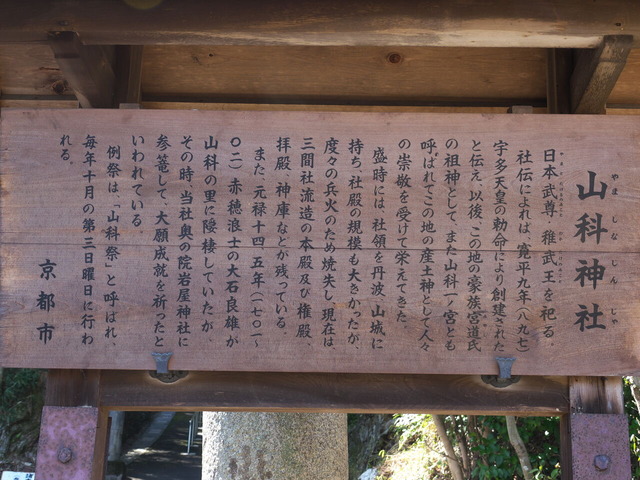 山科神社
やましなじんじゃ
日本武尊、稚武王を祀る。
社伝によれば、寛平九年(八九七)
宇多天皇の勅命により創建された
と伝え、以後、この地の豪族宮道氏
の祖神として、また山科一ノ宮とも
呼ばれてこの地の産土神として人々
の崇敬を受けて栄えてきた
盛時には、社領を丹波、山城に
持ち、社殿の規模も大きかったが、
度々の兵火のため焼失し、現在は
三間社流造の本殿及び権殿、
拝殿、神庫などが残っている。
また、元禄十四、五年(一七〇一〜
〇二)赤穂浪士の大石良雄が
山科の里に隠棲していたが、
その時、当社奥の院岩屋神社に
参篭して、大願成就を祈ったと
いわれている
例祭は、「山科祭」と呼ばれ、
毎年十月の第三日曜日に行わ
れる。
京都市